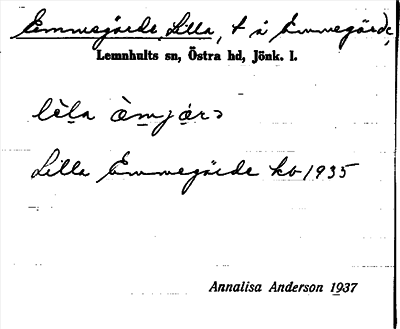 Emmegärde, Lilla, t i Emmegärde,
Lemnhults sn, Östra hd, Jönk. l.
Lilla Emmegärde kb 1935
Annalisa Anderson 1937